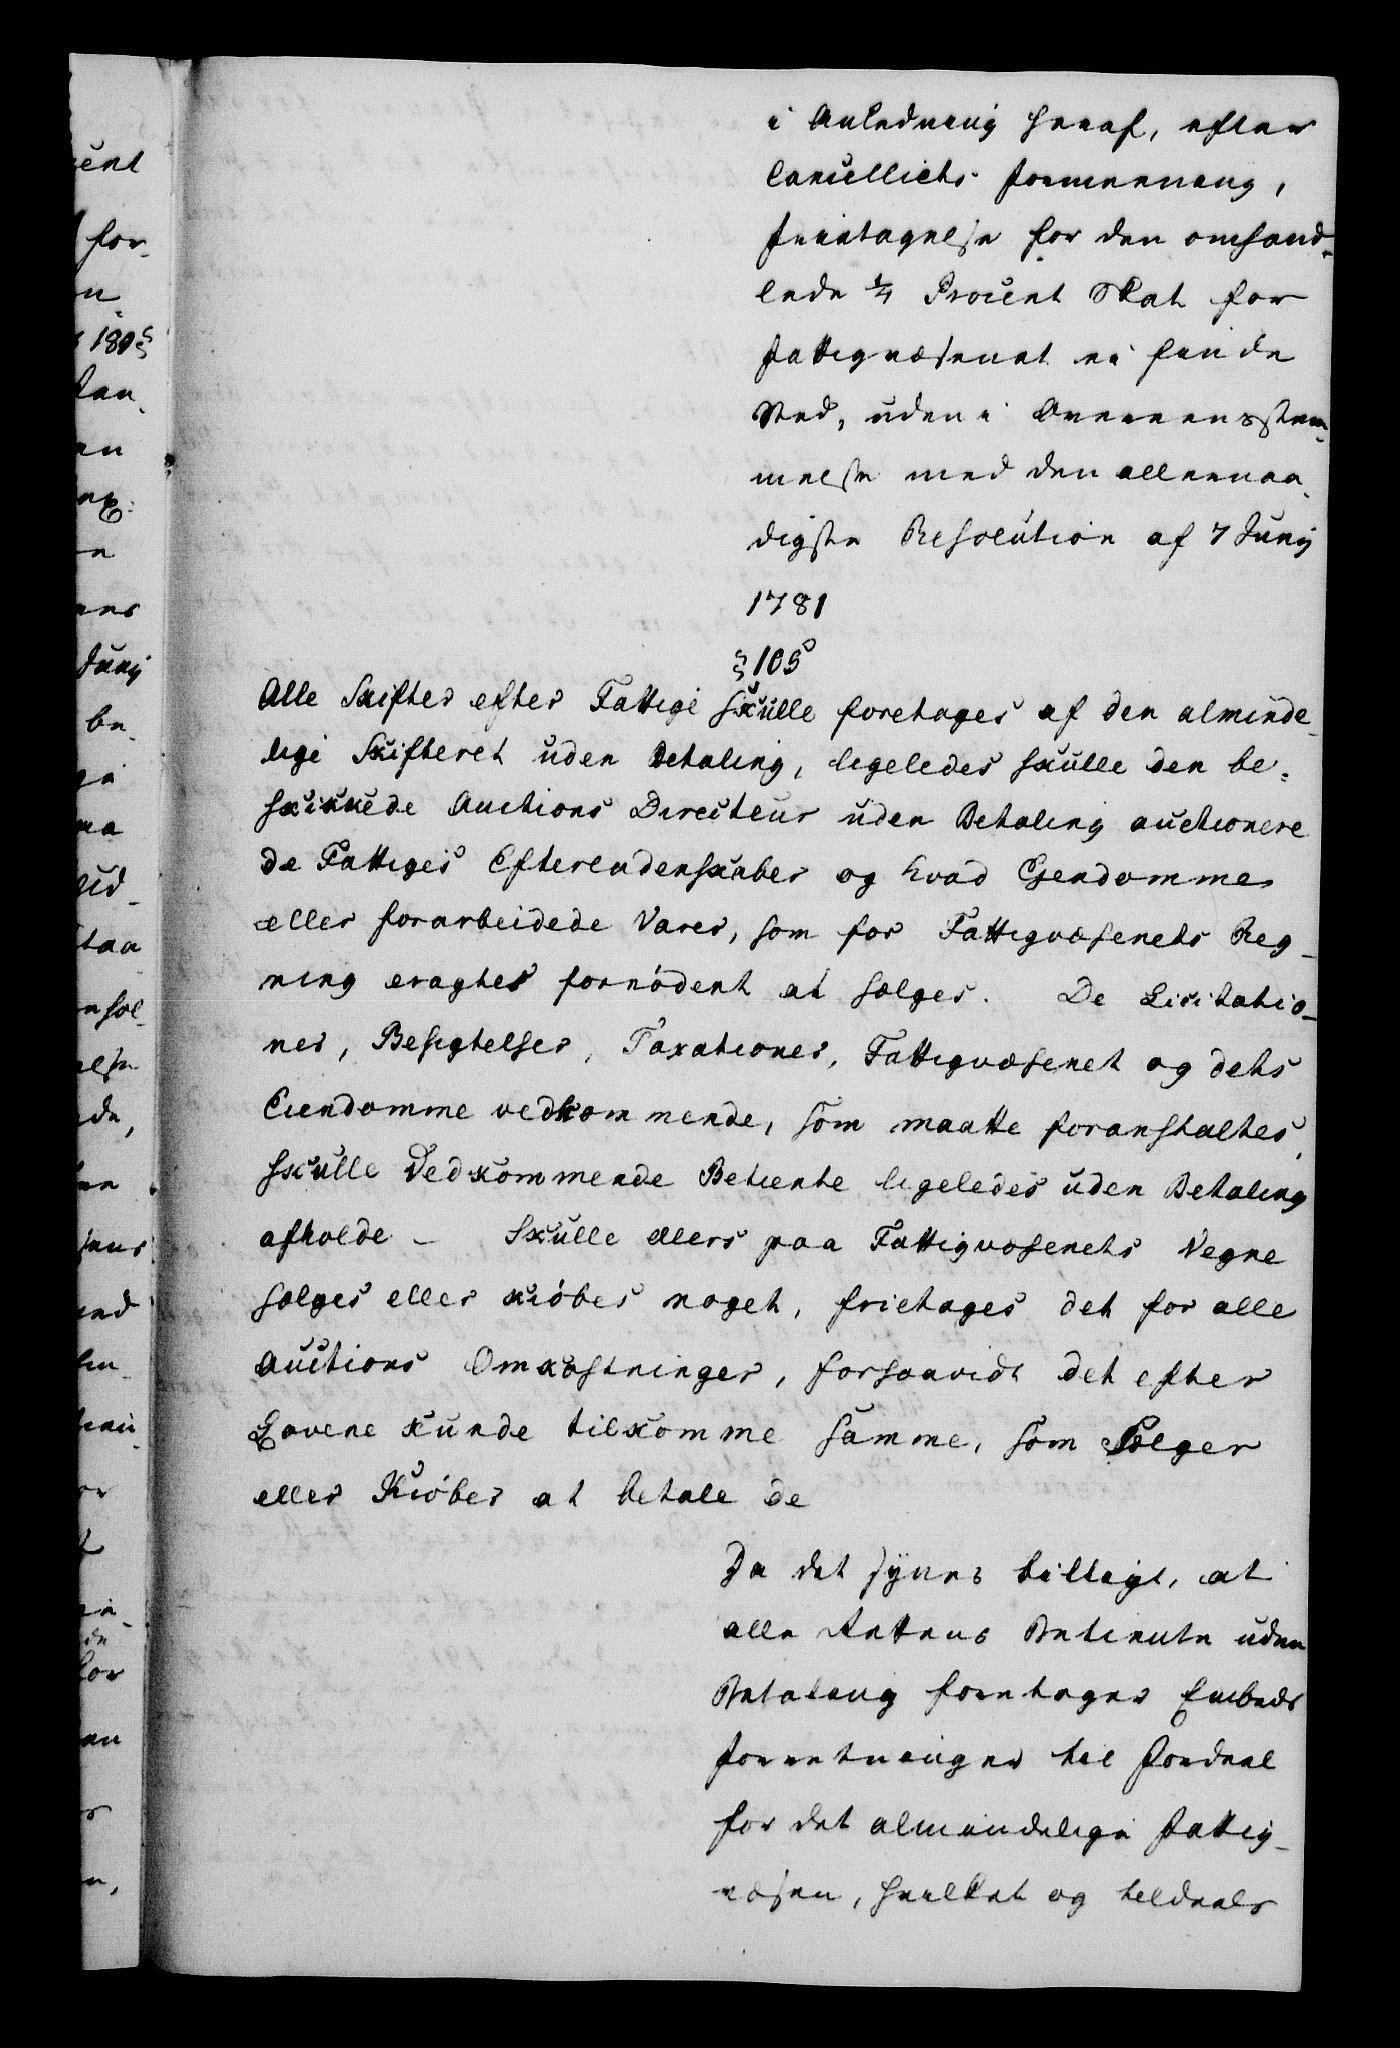 i Anledning heraf, efter
Cancelliets Formeening,
Fritagelse for den omhand-
lede ¼ Procent Skat for
Fattigvæsenet ei finde
Sted, uden i Overeensstem-
melse med den allernaa-
digste Resolution af 7 Junij
1781
§ 105
Alle Skifter efter Fattige skulle foretages af den alminde-
lige Skifteret uden Betaling, ligeledes skulle den be-
skikkede Auctions Directeur uden Betaling auctionere
de Fattiges Efterladenskaber og hvad Eiendomme
eller forarbeidede Varer, som for Fattigvæsenets Reg-
ning eragtes fornödent at sælges. De Licitatio-
ner, Besigtelser, Taxationer, Fattigvæsenet og dets
Eiendomme vedkommende, som maatte foranstaltes,
skulle Vedkommende Betiente ligeledes uden Betaling
afholde - Skulle ellers paa Fattigvæsenets Vegne
sælges eller kiöbes noget, frietages det for alle
Auctions Omkostninger, forsaavidt det efter
Lovene kunde tilkomme samme, som Sælger
eller Kiöber at betale de
Da det synes billigt, at
alle Rettens Betiente uden
Betaling foretager Embeds
Forretninger til Fordeel
for det almindelige Fattig-
væsen, hvilket og tildeels